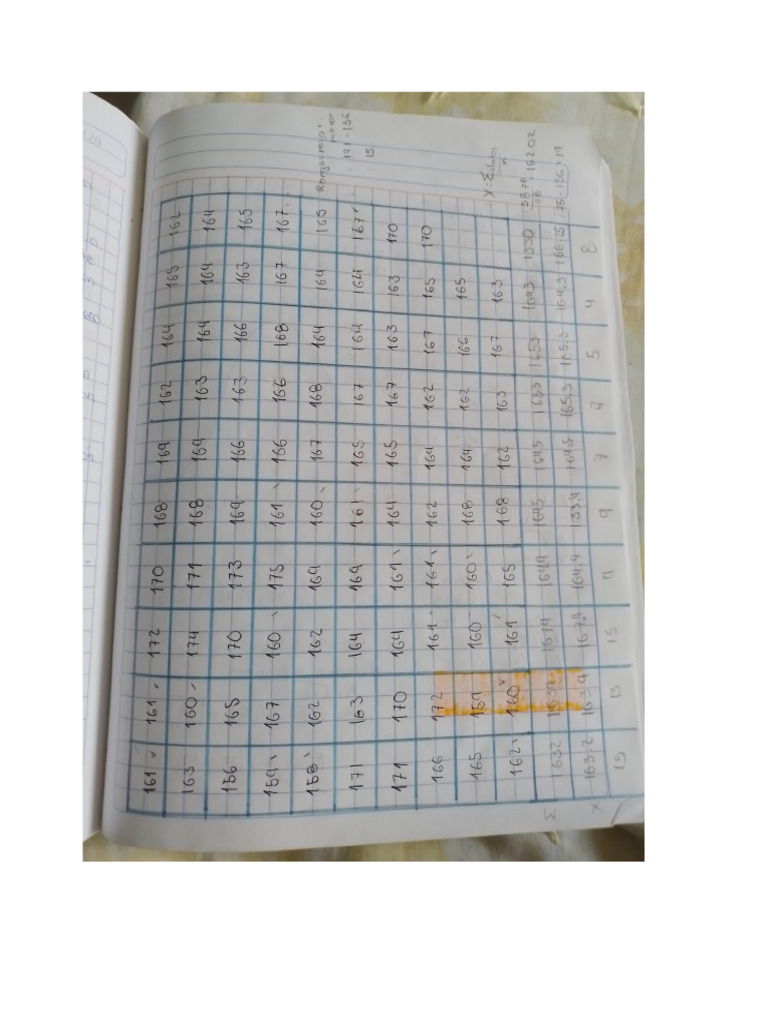 161 161 172 170 168 169 162 164 165 162
163 160 174 171 168 169 163 164 164 164
156 165 170 173 169 166 163 166 163 165
159 167 160 175 161 166 166 168 167 167
158 162 162 169 160 167 168 164 164 165
171 163 164 169 161 165 167 164 164 167
171 170 164 161 164 165 167 163 163 170
166 172 161 161 162 164 162 167 165 170
165 169 160 160 168 164 162 166 165
162 160 161 165 168 162 163 167 163
Σ 1632 1639 1679 1649 1645 1645 1633 1653 1643 1330
X 163.2 163.9 167.9 164.9 164.5 165.3 165.3 164.3 166.25
15 13 15 9 9 7 7 5 4 8
171 - 156
: 15
162.02